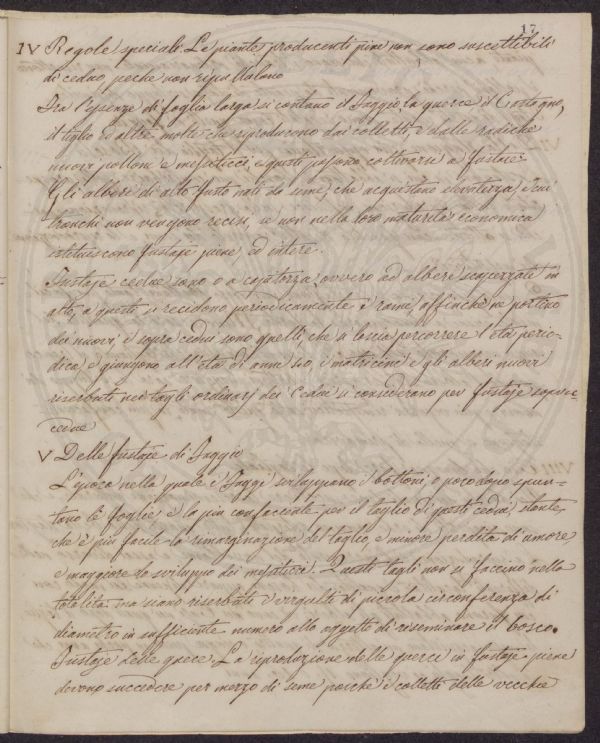 17
IV Regole speciali. Le piante producenti pine non sono suscettibili
di ceduo, peche non ripullulano
Fra l'essenze di foglia larga si contano il Faggio, la querce il Castagno,
il tiglio ed altre molte che riproducono dai colletti, e dalle radiche
nuovi polloni e messiticci, e questi possono coltivarsi a fustaie.
Gli alberi di alto fusto nati da seme, che acquistano elevatezza, e cui
tronchi non vengono recisi, se non nella loro maturità economica
istituiscono fustaje piene ed intere.
Fustaje cedue sono o a capitozza, ovvero ad alberi scapezzate in
alto, a queste si recidono periodicamente i rami, affinchè ne portino
dei nuovi; i sopra cedui sono quelli, che si lascia percorrere l'età perio-
dica, e giungono all'età di anni 40, i matricini e gli alberi nuovi
riserbati nei tagli ordinarj dei Cedui si considerano per fustaje sopra-
cedue
V Delle fustaje di Faggio
L'epoca nella quale i Faggi sviluppano i bottoni, o poco dopo spun-
tano le foglie è la piu confacente per il taglio di questi cedui, stante
che è più facile la rimarginazione del taglio, e minore perdita di umore,
e maggiore lo sviluppo dei messiticci. Questi tagli non si faccino nella
totalità ma siano riserbati i virgulti di piccola circonferenza di
diametro in sufficiente numero allo oggetto di riseminare il bosco.
Fustaje delle querce. La riproduzione delle querci in fustaje piene
devono succedere per mezzo di seme poichè i colletti delle vecchie